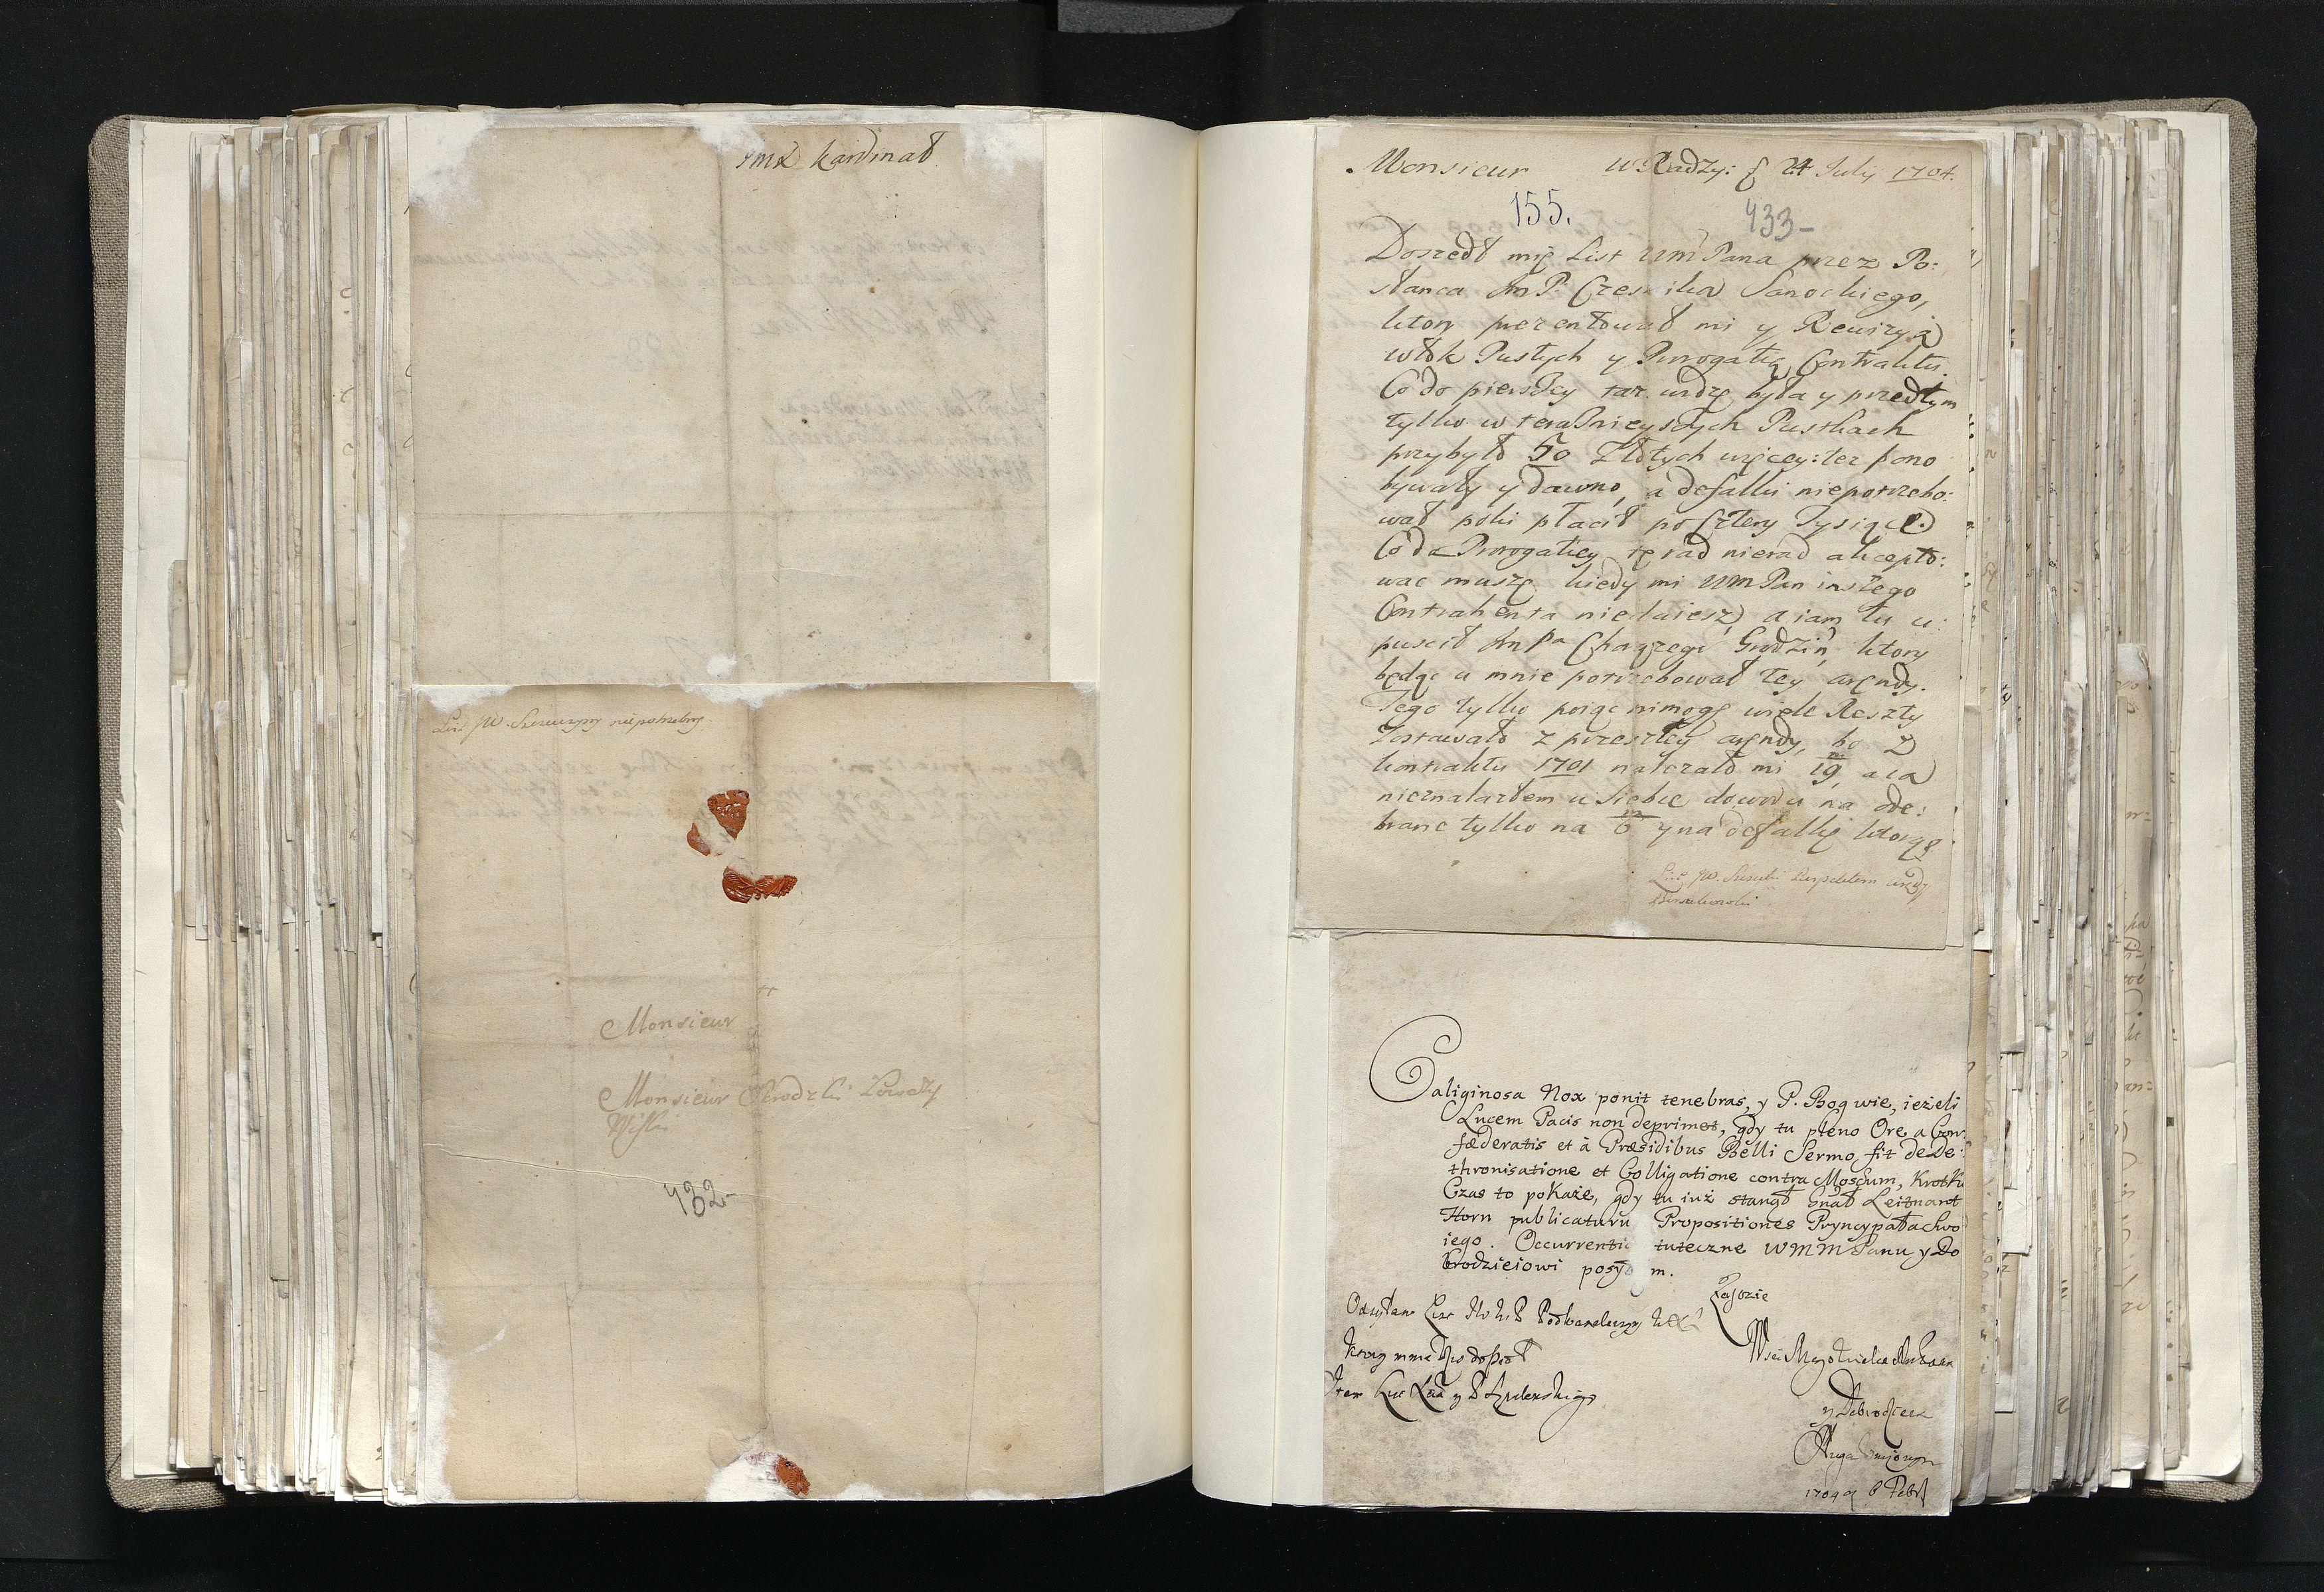 JmX kardinał
List JW. niepotrzebny
Monsieur
Monsieur Łowczy
Wiski
432-
Monsieur w Radzy: 24 July 1704.
155. 433-
Doszedł mię List WmPana przez Po:
słanca JmP. Czesnika Sanockiego,
ktory prezentował mi y Rewizyą
włok Pustych y Prorogatią Contraktu.
Co do pierszey taż była y przedtym
tylko w teraznieyszych Pustkach
przybyło 50 Złotych więcey: też pono
bywały y dawno, a defalki niepotrzebo:
wał poki płacił po Cztery Tysiące.
Co do Prorogatiey, tę rad nierad akcepto:
wac muszę kiedy mi WM Pan inszego
Contrahenta niedaiesz, a iam tu u:
puscił Jm Pa Chorązego Grodzin, ktory
będąc u mnie potrzebował tey arędy.
Tego tylko poiąc nimogę wiele Reszty
Zostawało z przeszłey arędy, bo z
kontraktu 1701 należało mi 19, a ia
nieznalazłem u Siebie dowodu na ode:
brane tylko na 6 y na defalkę ktorąś
List JW. arędy
Caliginosa Nox ponit tenebras, y P. Bog wie, ieżeli
Lucem Pacis non deprimet, gdy tu pleno Ore a Con:
fæderatis et à Præsidibus Belli Sermo fit de De:
thronisatione et Colligatione contra Moschum, Krotki
Czas to pokaże, gdy tu iuż stanął Gnał Leitnant
Horn publicaturus Propositiones Pryncypała Swo
iego. Occurrentie tuteczne WMM Panu y Do
brodzieiowi posyłam.
Odsyłam List
Item List
y Dobrodzieia
Sługa
1704 d 6 Febr